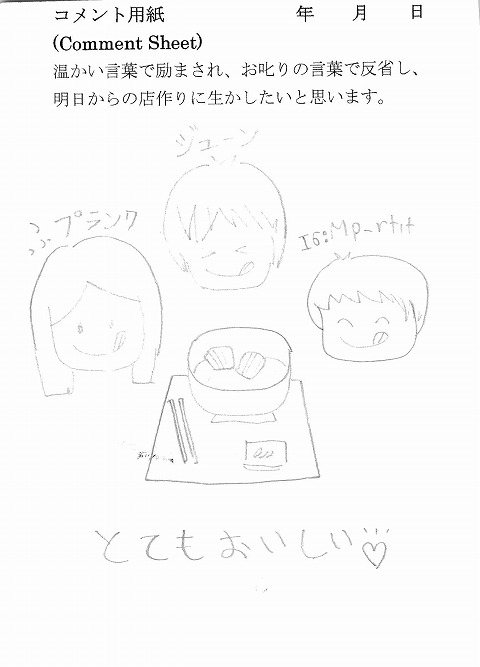 コメント用紙 年 月 日
(Comment Sheet)
温かい言葉で励まされ、お叱りの言葉で反省し、
明日からの店作りに生かしたいと思います。
ジューン
プランク
IG:Mp_rtit
とてもおいしい♡